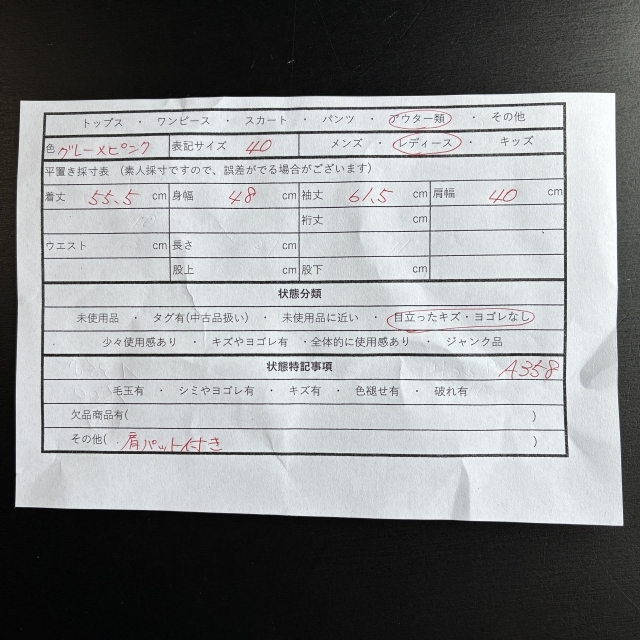 トップス ・ ワンピース ・ スカート ・ パンツ ・ アウター類 ・ その他
色 グレー×ピンク 表記サイズ 40 メンズ ・ レディース ・ キッズ
平置き採寸表 (素人採寸ですので、誤差がでる場合がございます)
着丈 55.5 cm 身幅 48 cm 袖丈 61.5 cm 肩幅 40 cm
裄丈 cm
ウエスト cm 長さ cm
股上 cm 股下 cm
状態分類
未使用品 ・ タグ有(中古品扱い) ・ 未使用品に近い ・ 目立ったキズ・ヨゴレなし
少々使用感あり ・ キズやヨゴレ有 ・全体的に使用感あり ・ ジャンク品
状態特記事項 A358
毛玉有 ・ シミやヨゴレ有 ・ キズ有 ・ 色褪せ有 ・ 破れ有
欠品商品有( )
その他( 肩パット付き )